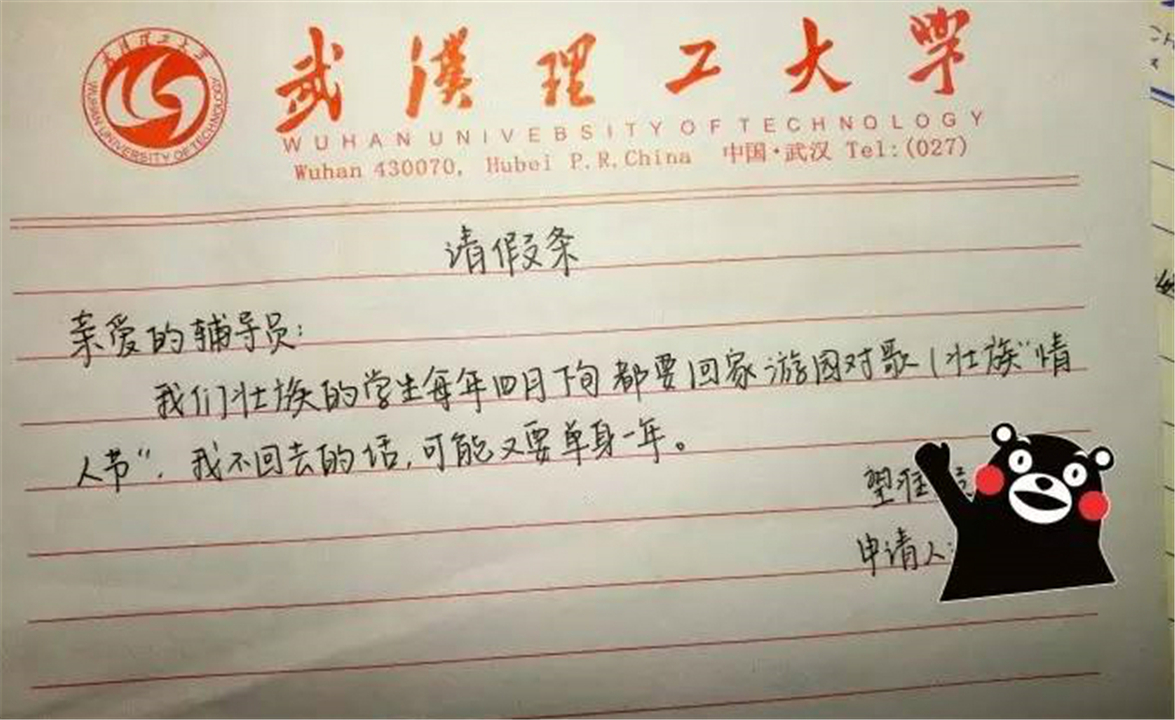 武汉理工大学
WUHAN UNIVEBSITY OF TECHNOLOGY
WUHAN UNIVERSITY OF TECHNOLOGY
Wuhan 430070, Hubei P.R.China 中国·武汉 Tel:(027)
请假条
亲爱的辅导员:
我们壮族的学生每年四月下旬都要回家游园对歌(壮族“情
人节”,我不回去的话,可能又要单身一年。
望准
申请人: